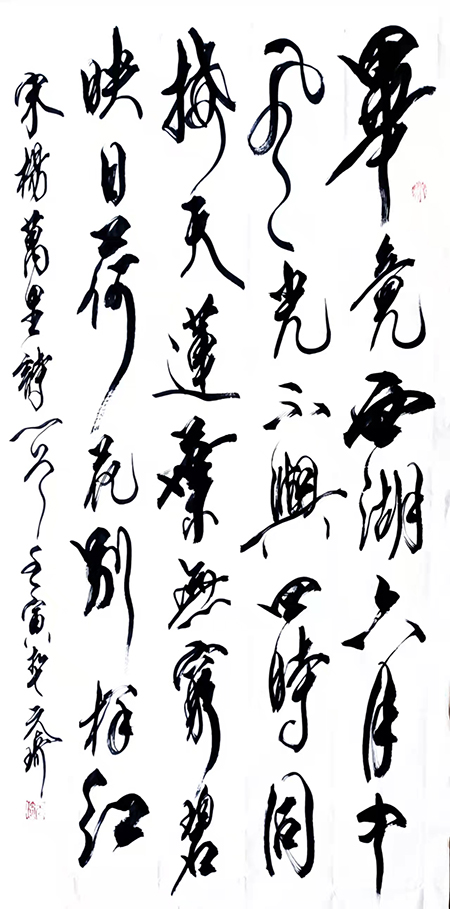 畢竟西湖六月中
風光不與四時同
接天蓮葉無窮碧
映日荷花別樣紅
宋楊萬里詩一首壬寅